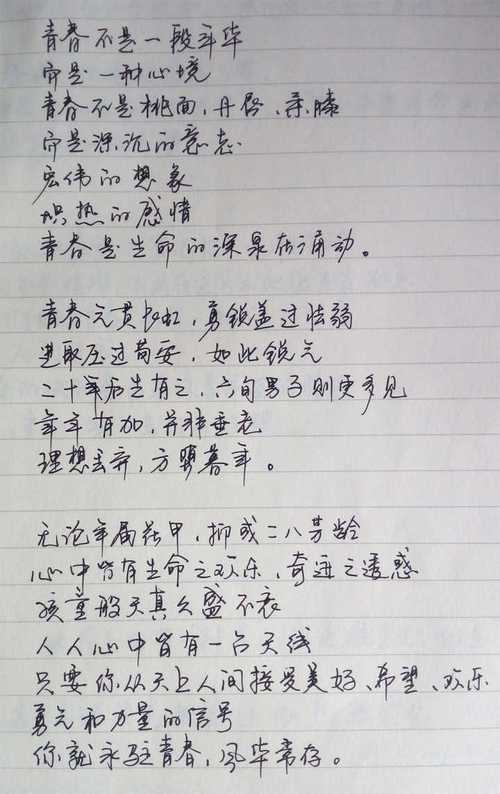 青春不是一段年华
而是一种心境
青春不是桃面、丹唇、柔膝
而是深沉的意志
宏伟的想象
炽热的感情
青春是生命的深泉在涌动。
青春气贯长虹，勇锐盖过怯弱
进取压过苟安，如此锐气
二十年后生有之，六旬男子则更多见
年年有加，并非垂老
理想丢弃，方堕暮年。
无论年届花甲，抑或二八芳龄
心中皆有生命之欢乐，奇迹之诱惑
孩童般天真久盛不衰
人人心中皆有一台天线
只要你从天上人间接受美好、希望、欢乐
勇气和力量的信号
你就永驻青春，风华常存。